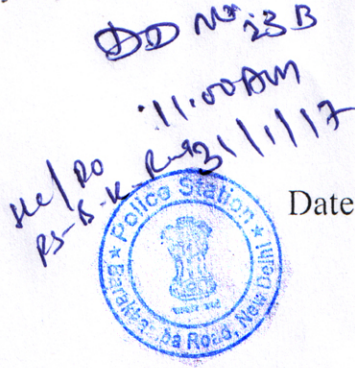 DD No 23 B
11.00 AM
31/1/17
HC/DO
PS-B-K-Road
Date
Police Station
Barakhamba Road, New Delhi